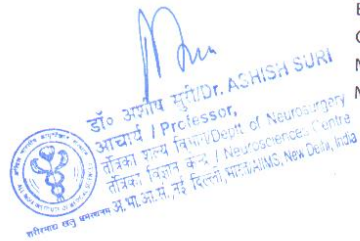 डॉ० आशीष सुरी/Dr. ASHISH SURI
आचार्य / Professor,
तंत्रिका शल्य विभाग/Deptt of Neurosurgery
तंत्रिका विज्ञान केन्द्र / Neurosciences Centre
अ.भा.आ.सं, नई दिल्ली, भारत/AIIMS, New Delhi, India
शरीरमाद्यं खलु धर्मसाधनम्